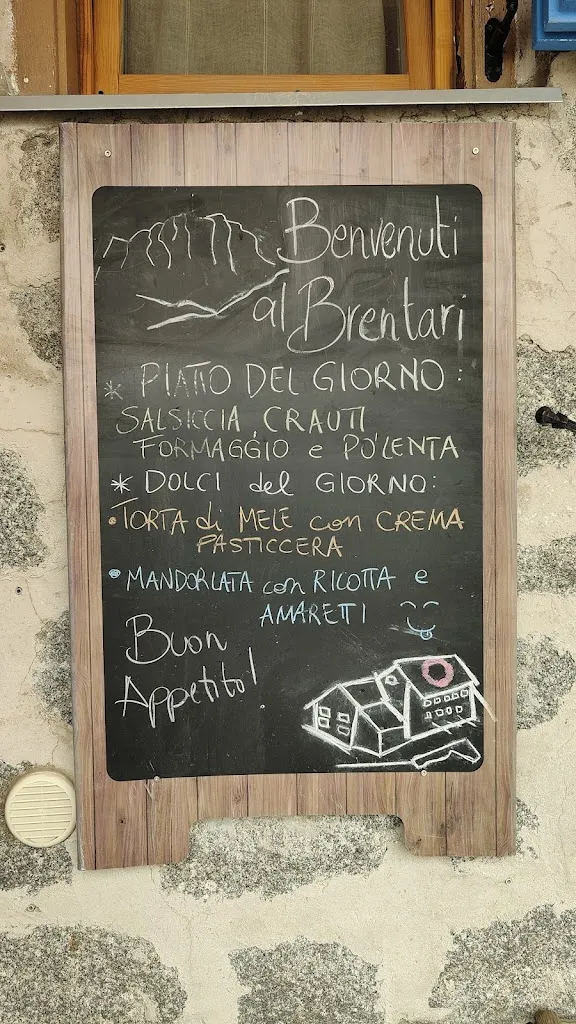 Benvenuti
al Brentari
* PIATTO DEL GIORNO:
SALSICCIA, CRAUTI
FORMAGGIO e POLENTA
* DOLCI del GIORNO:
• TORTA di MELE con CREMA
PASTICCERA
• MANDORLATA con RICOTTA e
AMARETTI
Buon
Appetito!